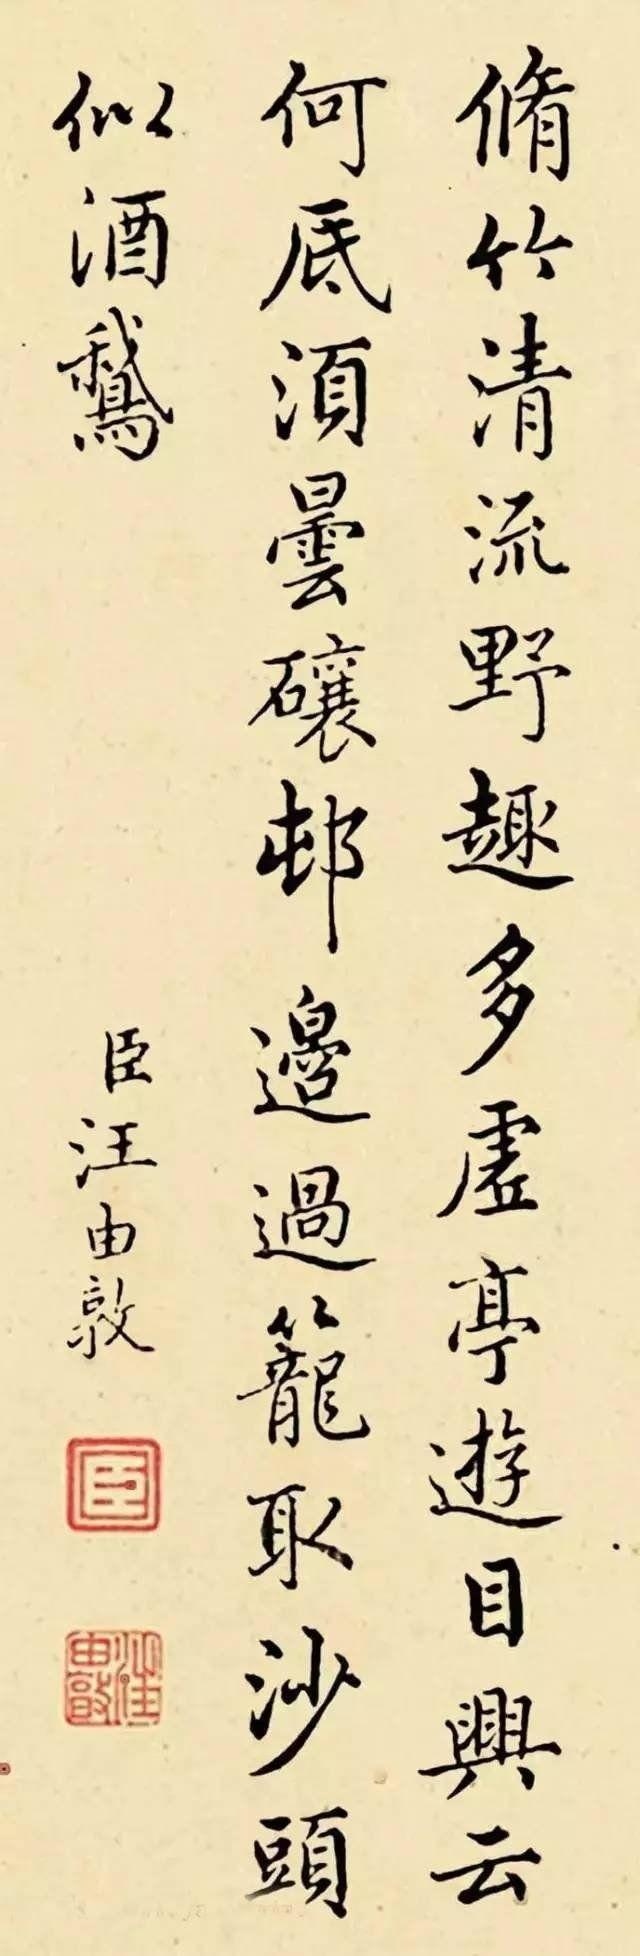 脩竹清流野趣多虛亭遊目興云
何底須曇礦邨邊過籠取沙頭
似酒鵝
臣汪由敦
臣
汪由敦